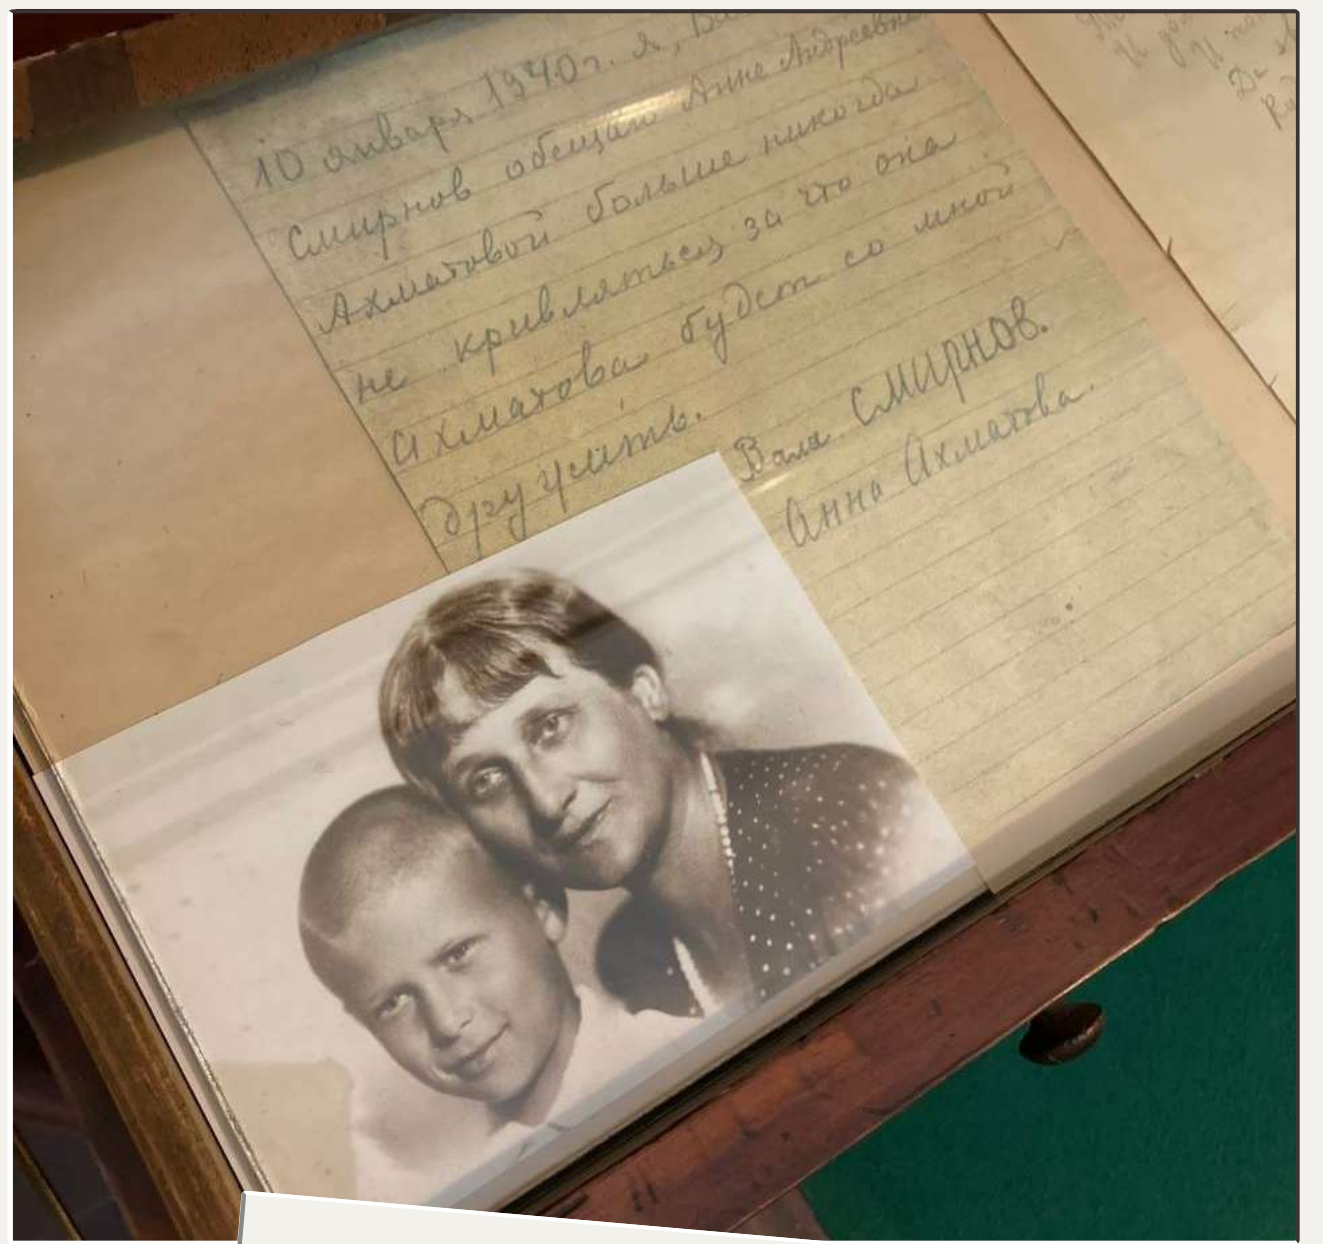 10 января 1940 г. я, Ва
Смирнов обещаю Анне Андреевне
Ахматовой больше никогда
не кривляться, за что она
Ахматова будет со мной
дружить.
Валя Смирнов.
Анна Ахматова.